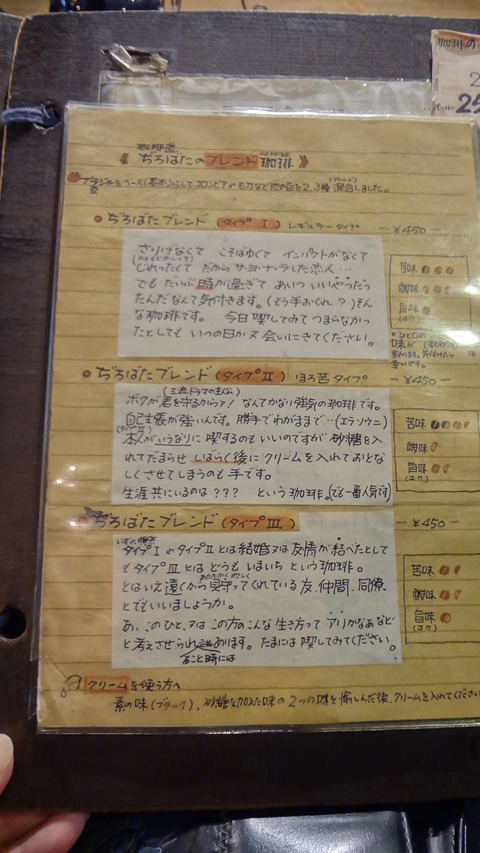 珈琲の
2
25
珈琲道
《 ぢろばたのブレンド珈琲 》
ブラジルをベース(基本)にしてコロンビアやモカなど他の豆を2、3種混合しました。
ぢろばたブレンド (タイプ I) レギュラータイプ ー¥450ー
さりげなくて こそばゆくて インパクトがなくて
じれったくて だから サヨナラした恋人…
でも たいぶ時が過ぎて あいつ いいやつだっ
たんだなんて 気付きます。(もう手おくれ?)そん
な珈琲です。 今日 喫してみて つまらなかっ
たとしても いつの日か又会いにきてください。
苦味
酸味
旨味
(コク)
ぢろばたブレンド (タイプ II) ほろ苦タイプ ー¥450ー
(三流ドラマの主人公)
ボクが君を守るから?! なんてかなり強気の珈琲です。
自己主張が強いんです。勝手でわがままで…(エラソウニ)
本人がいうなりに 喫するのもいいのですが 砂糖を入
れてだまらせ しばらく後に クリームを入れておとな
しくさせてしまうのも 手です。
生涯共にいるのは??? という珈琲。(でも一番人気です)
苦味
酸味
旨味
(コク)
ぢろばたブレンド (タイプ III) ー¥450ー
タイプI やタイプII とは 結婚又は友情が結べたとして
もタイプIII とは どうも いまいち という珈琲。
とはいえ 遠くから 見守ってくれている 友、仲間、同僚、
とでもいいましょうか。
あ、この ひと、又は この方の こんな 生き方って アリかなぁなど
と考えさせられ あります。たまには喫してみてください。
ること時には
苦味
酸味
旨味
(コク)
クリームを使う方へ
素の味(ブラック)、砂糖を加えた味の2つの味を愉しんだ後、クリームを入れてください